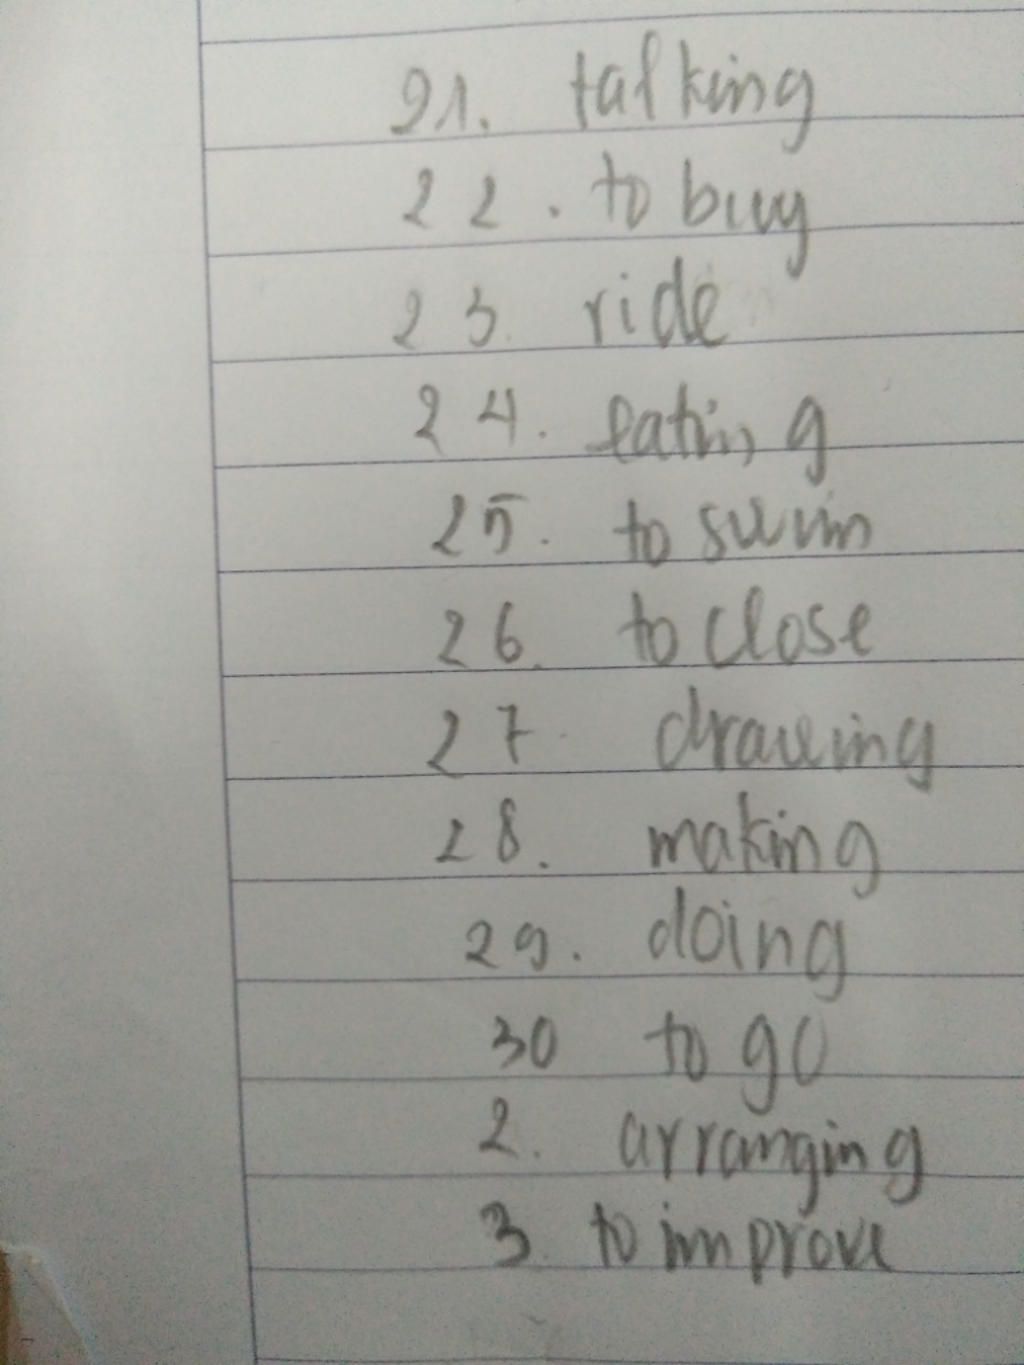 21. talking
22. to buy
23. ride
24. eating
25. to swim
26. to close
27. drawing
28. making
29. doing
30 to go
2. arranging
3. to improve